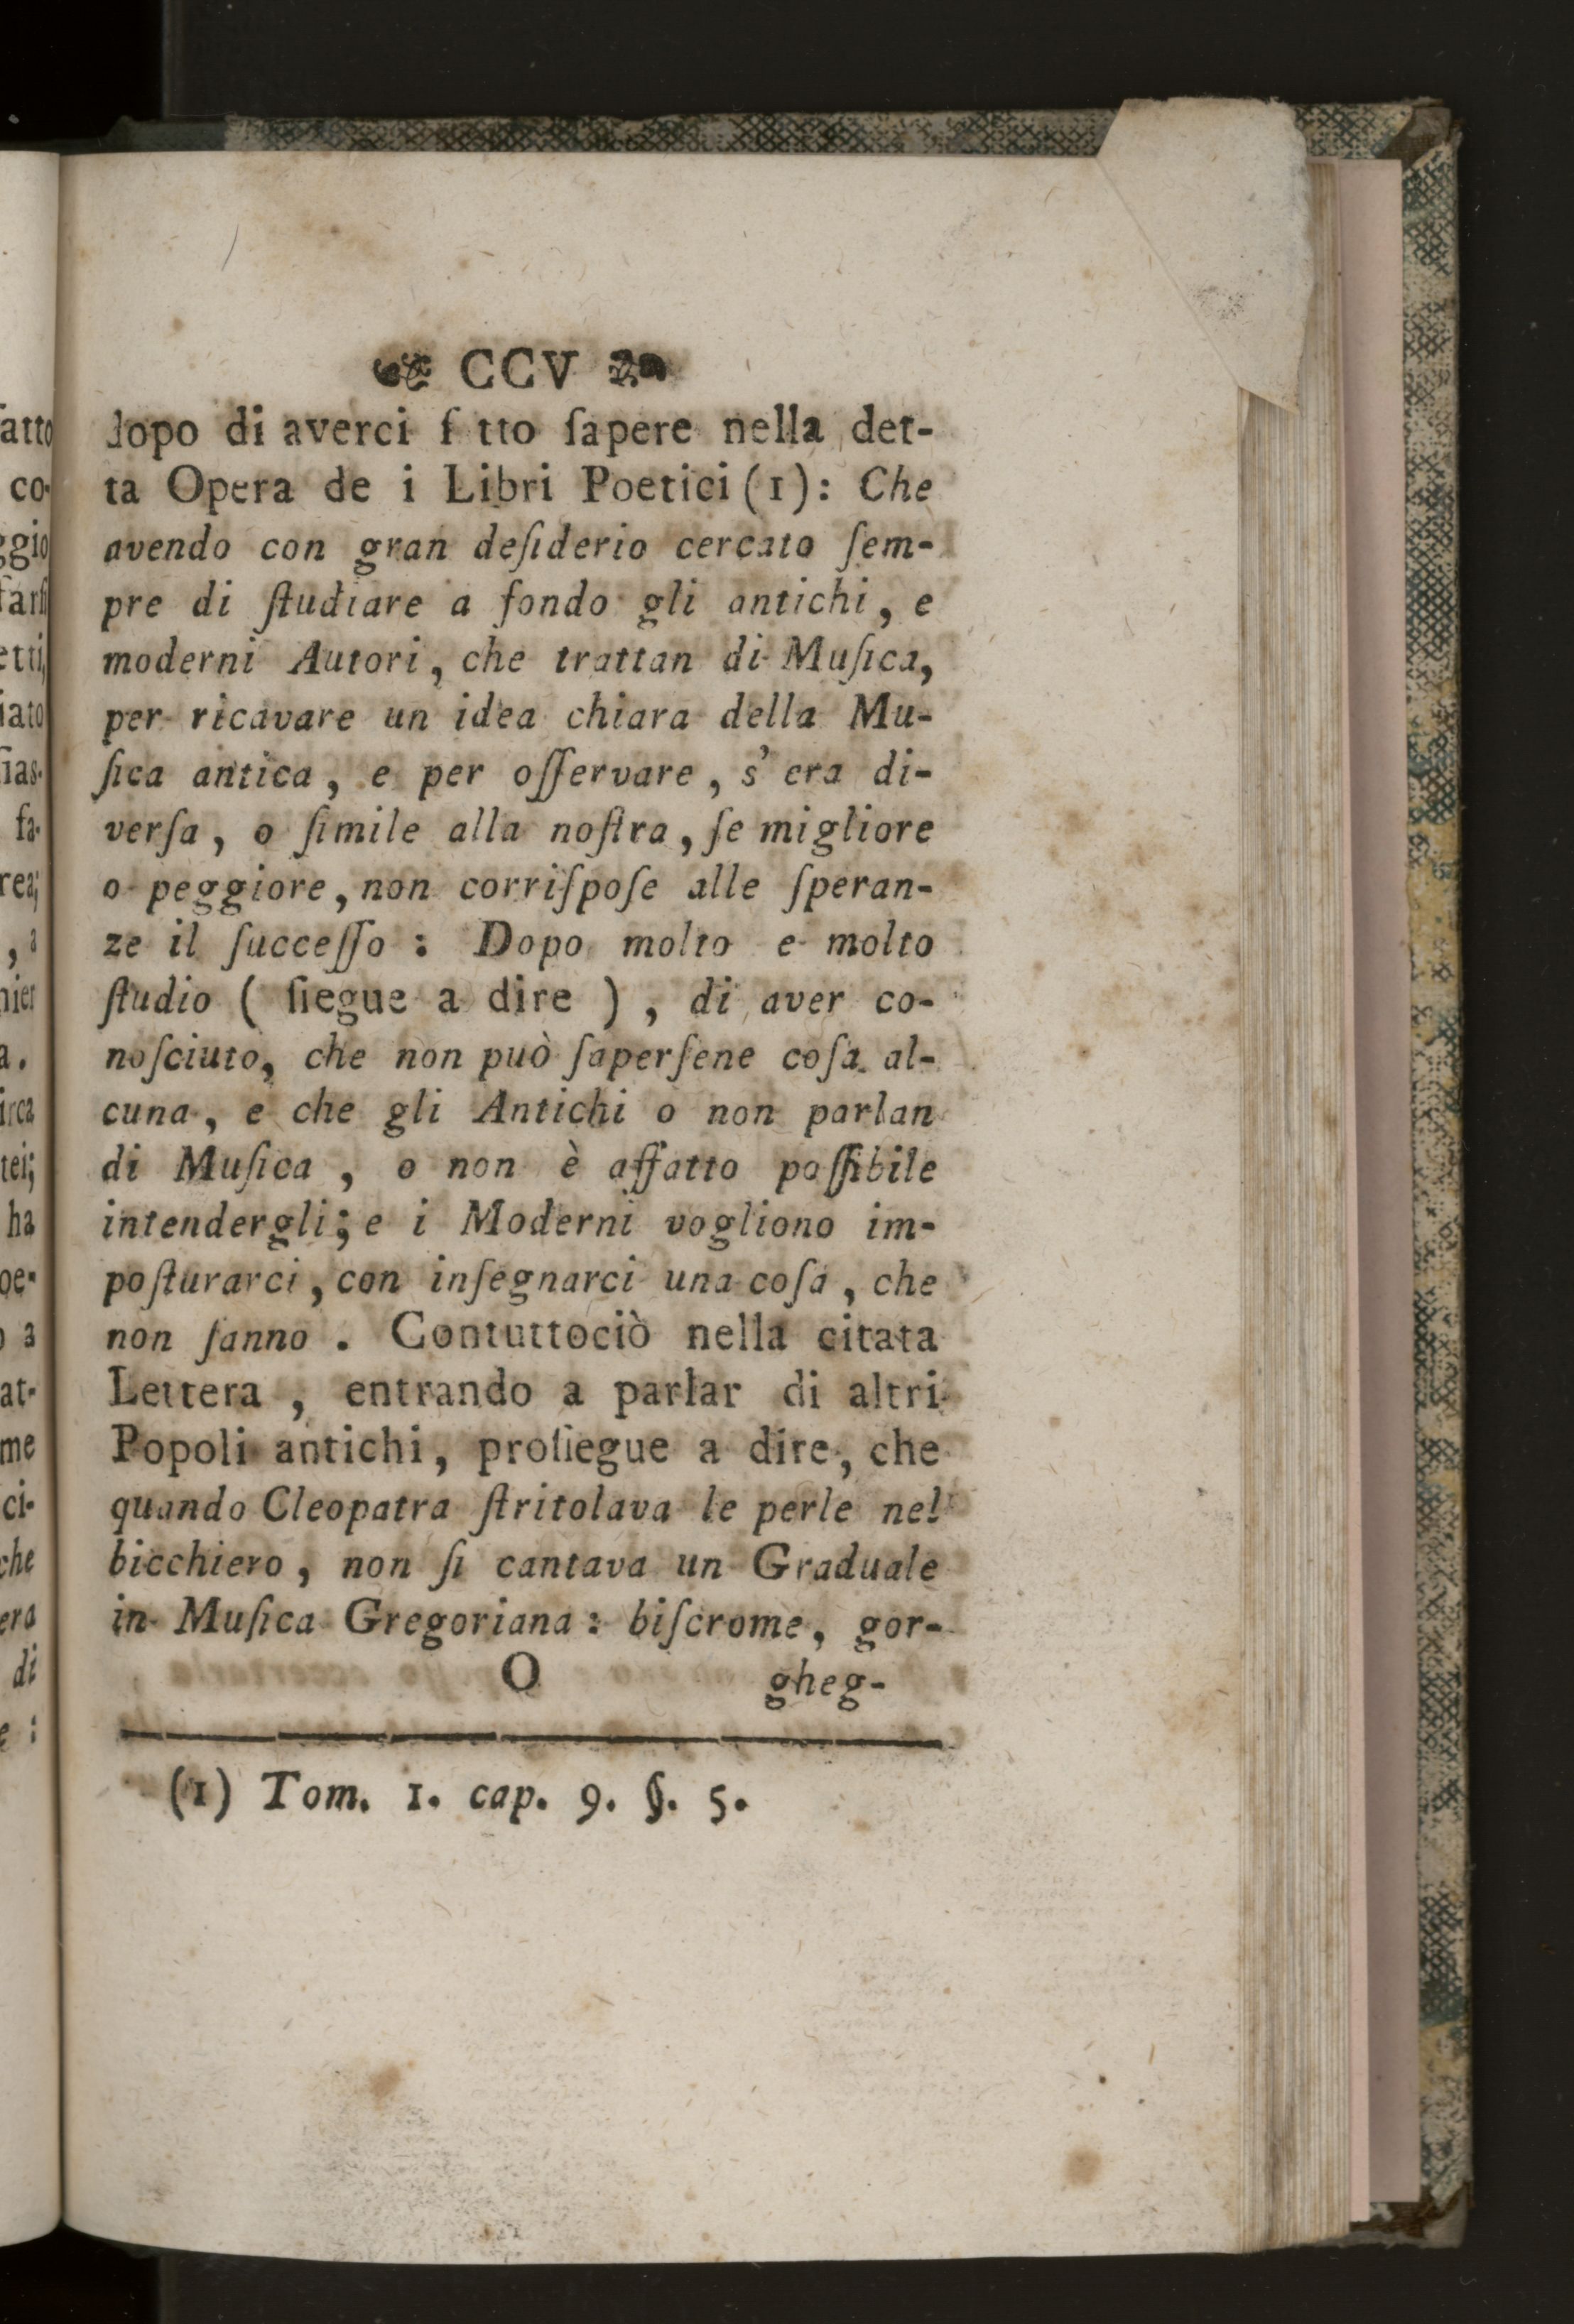 CCV
dopo di averci f tto ſapere nella det-
ta Opera de i Libri Poetici (1): Che
avendo con gran deſiderio cercato ſem-
pre di ſtudiare a fondo gli antichi, e
moderni Autori, che trattan di Muſica,
per ricavare un idea chiara della Mu-
ſica antica, e per oſſervare, s' era di-
verſa, o ſimile alla noſtra, ſe migliore
o peggiore, non corriſpoſe alle ſperan-
ze il ſucceſſo : Dopo molto e molto
ſtudio ( ſiegue a dire ) , di aver co-
noſciuto, che non può ſaperſene coſa al-
cuna, e che gli Antichi o non parlan
di Muſica , o non è affatto poſſibile
intendergli; e i Moderni vogliono im-
poſturarci, con inſegnarci una coſa, che
non ſanno . Contuttociò nella citata
Lettera , entrando a parlar di altri
Popoli antichi, proſiegue a dire, che
quando Cleopatra ſtritolava le perle nel
bicchiero, non ſi cantava un Graduale
in Muſica Gregoriana : biſcrome, gor-
O gheg-
(1) Tom. 1. cap. 9. §. 5.